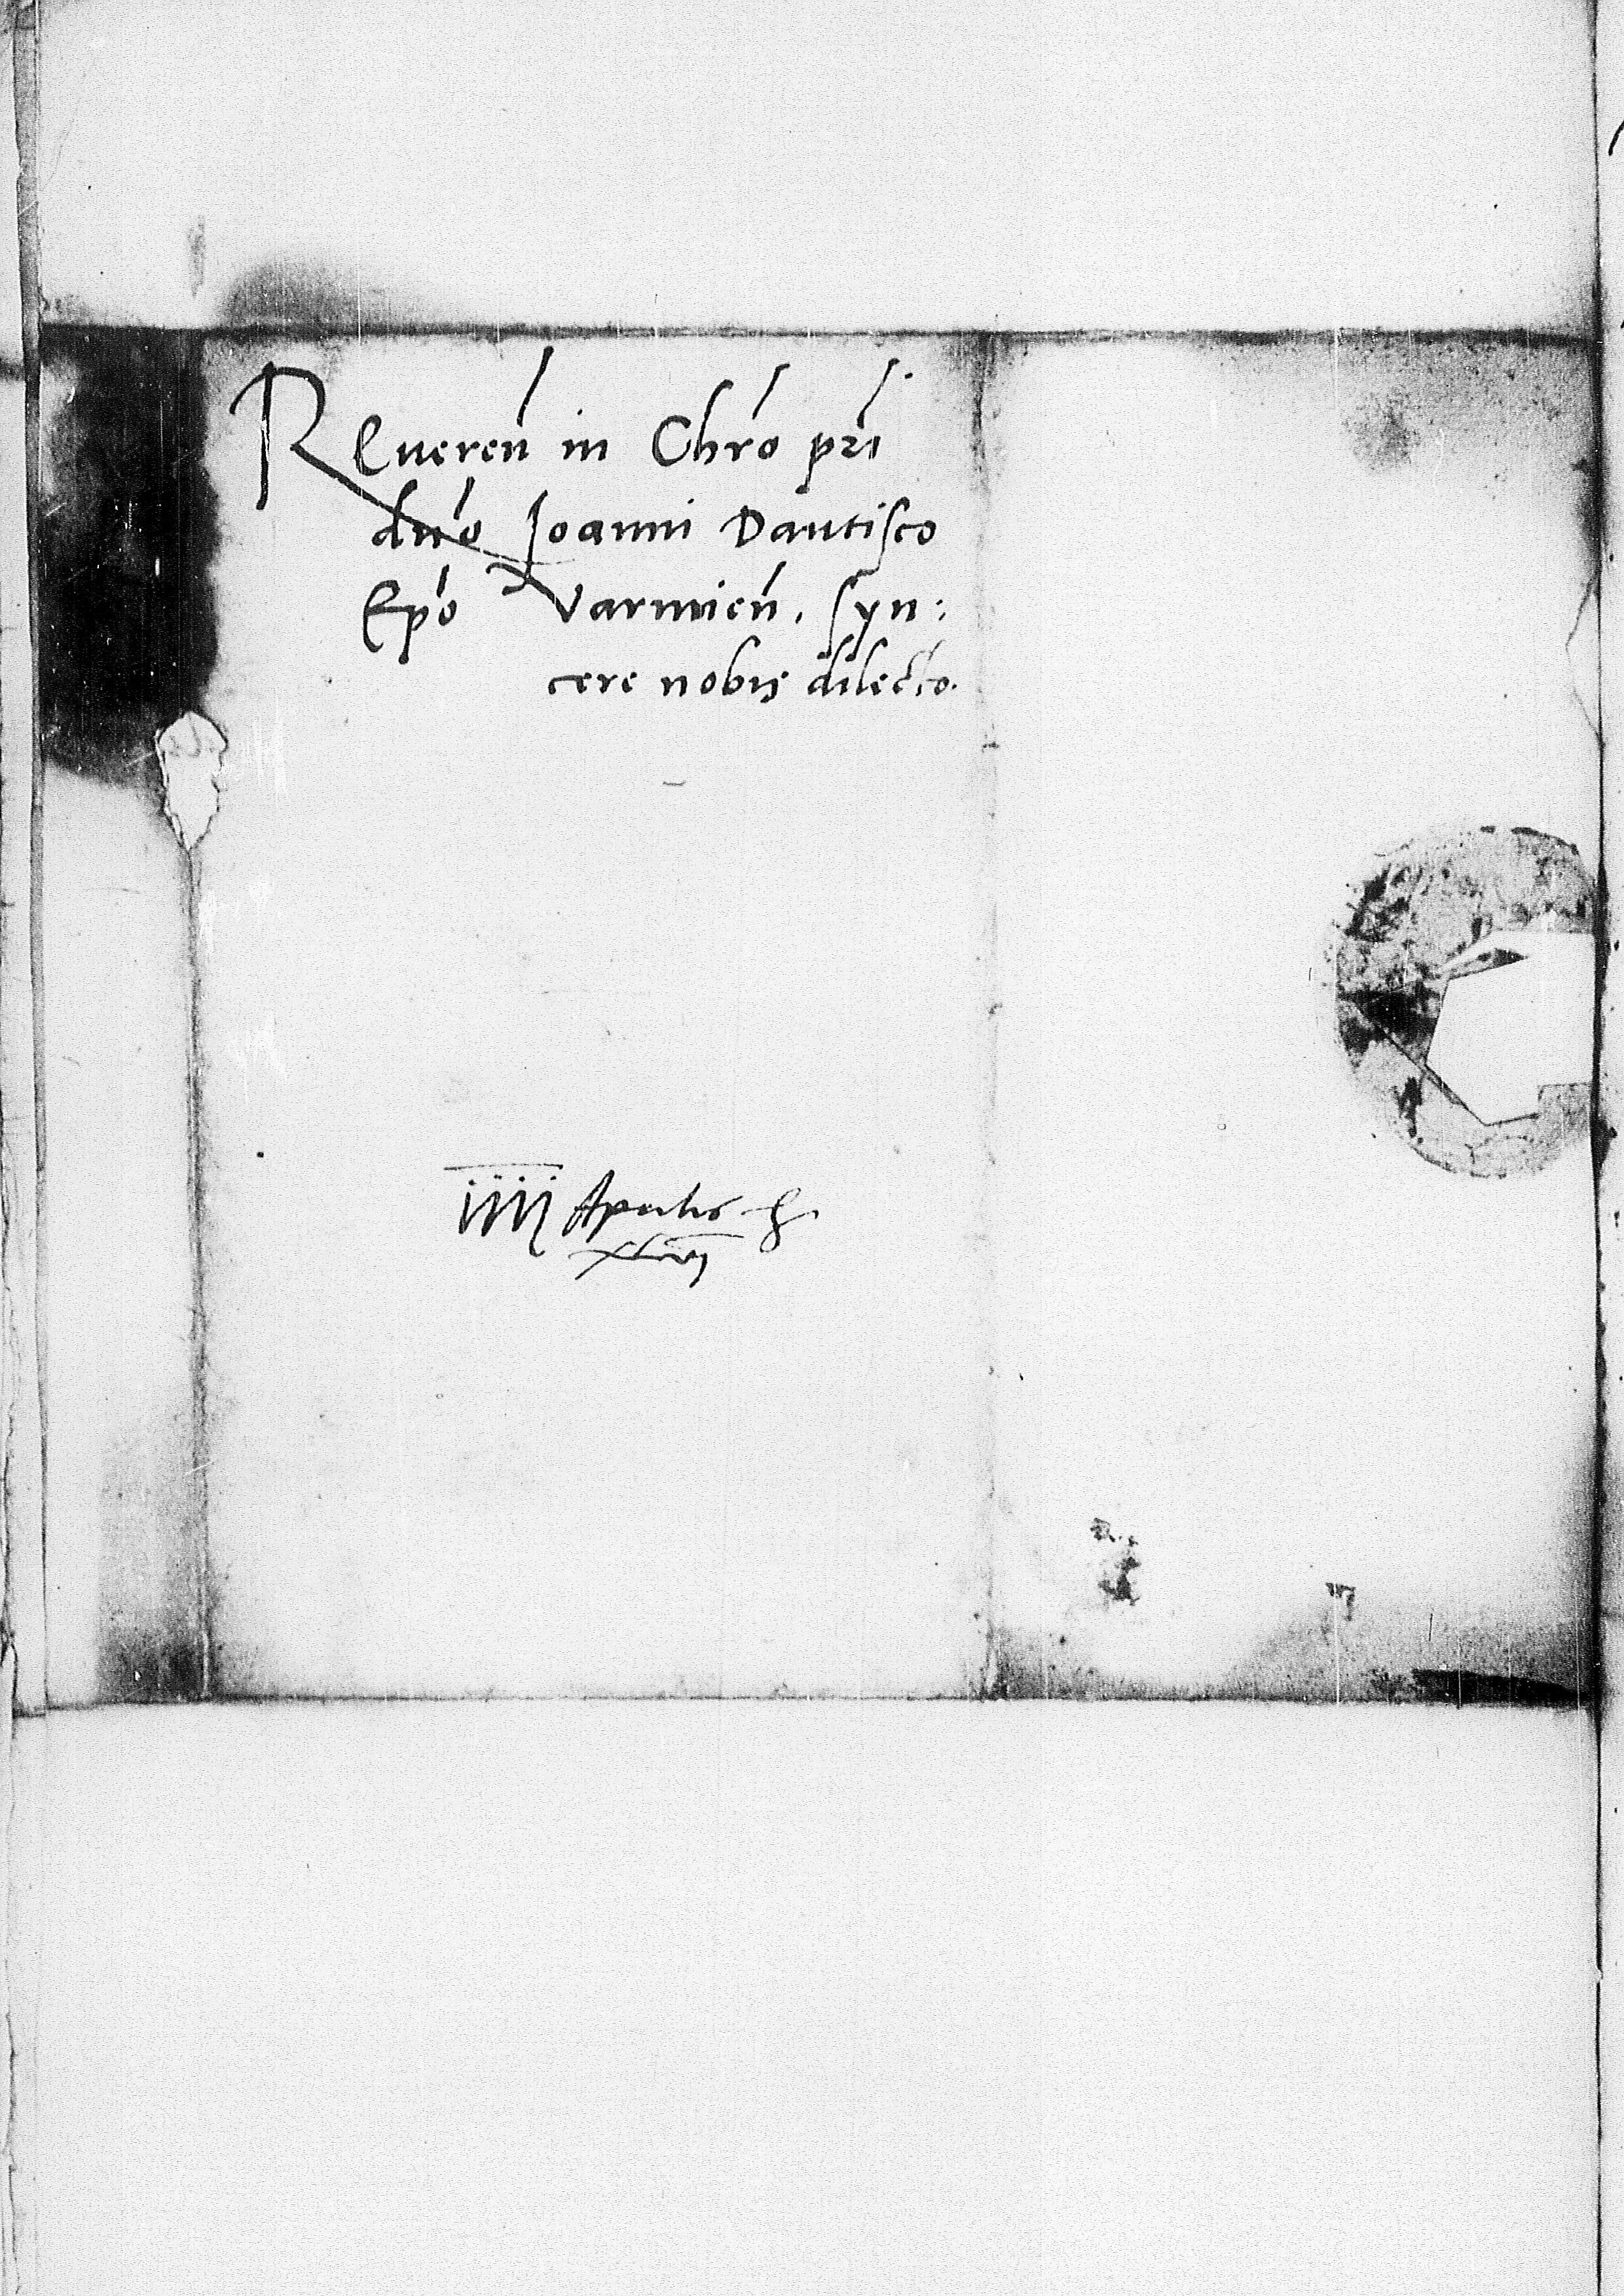 Reueren̄ in Chr̄o pr̄i
dn̄o Ioanni Dantisco
Ep̄o Varmien̄. syn:
cere nobis dilecto.
iiij Aprilis